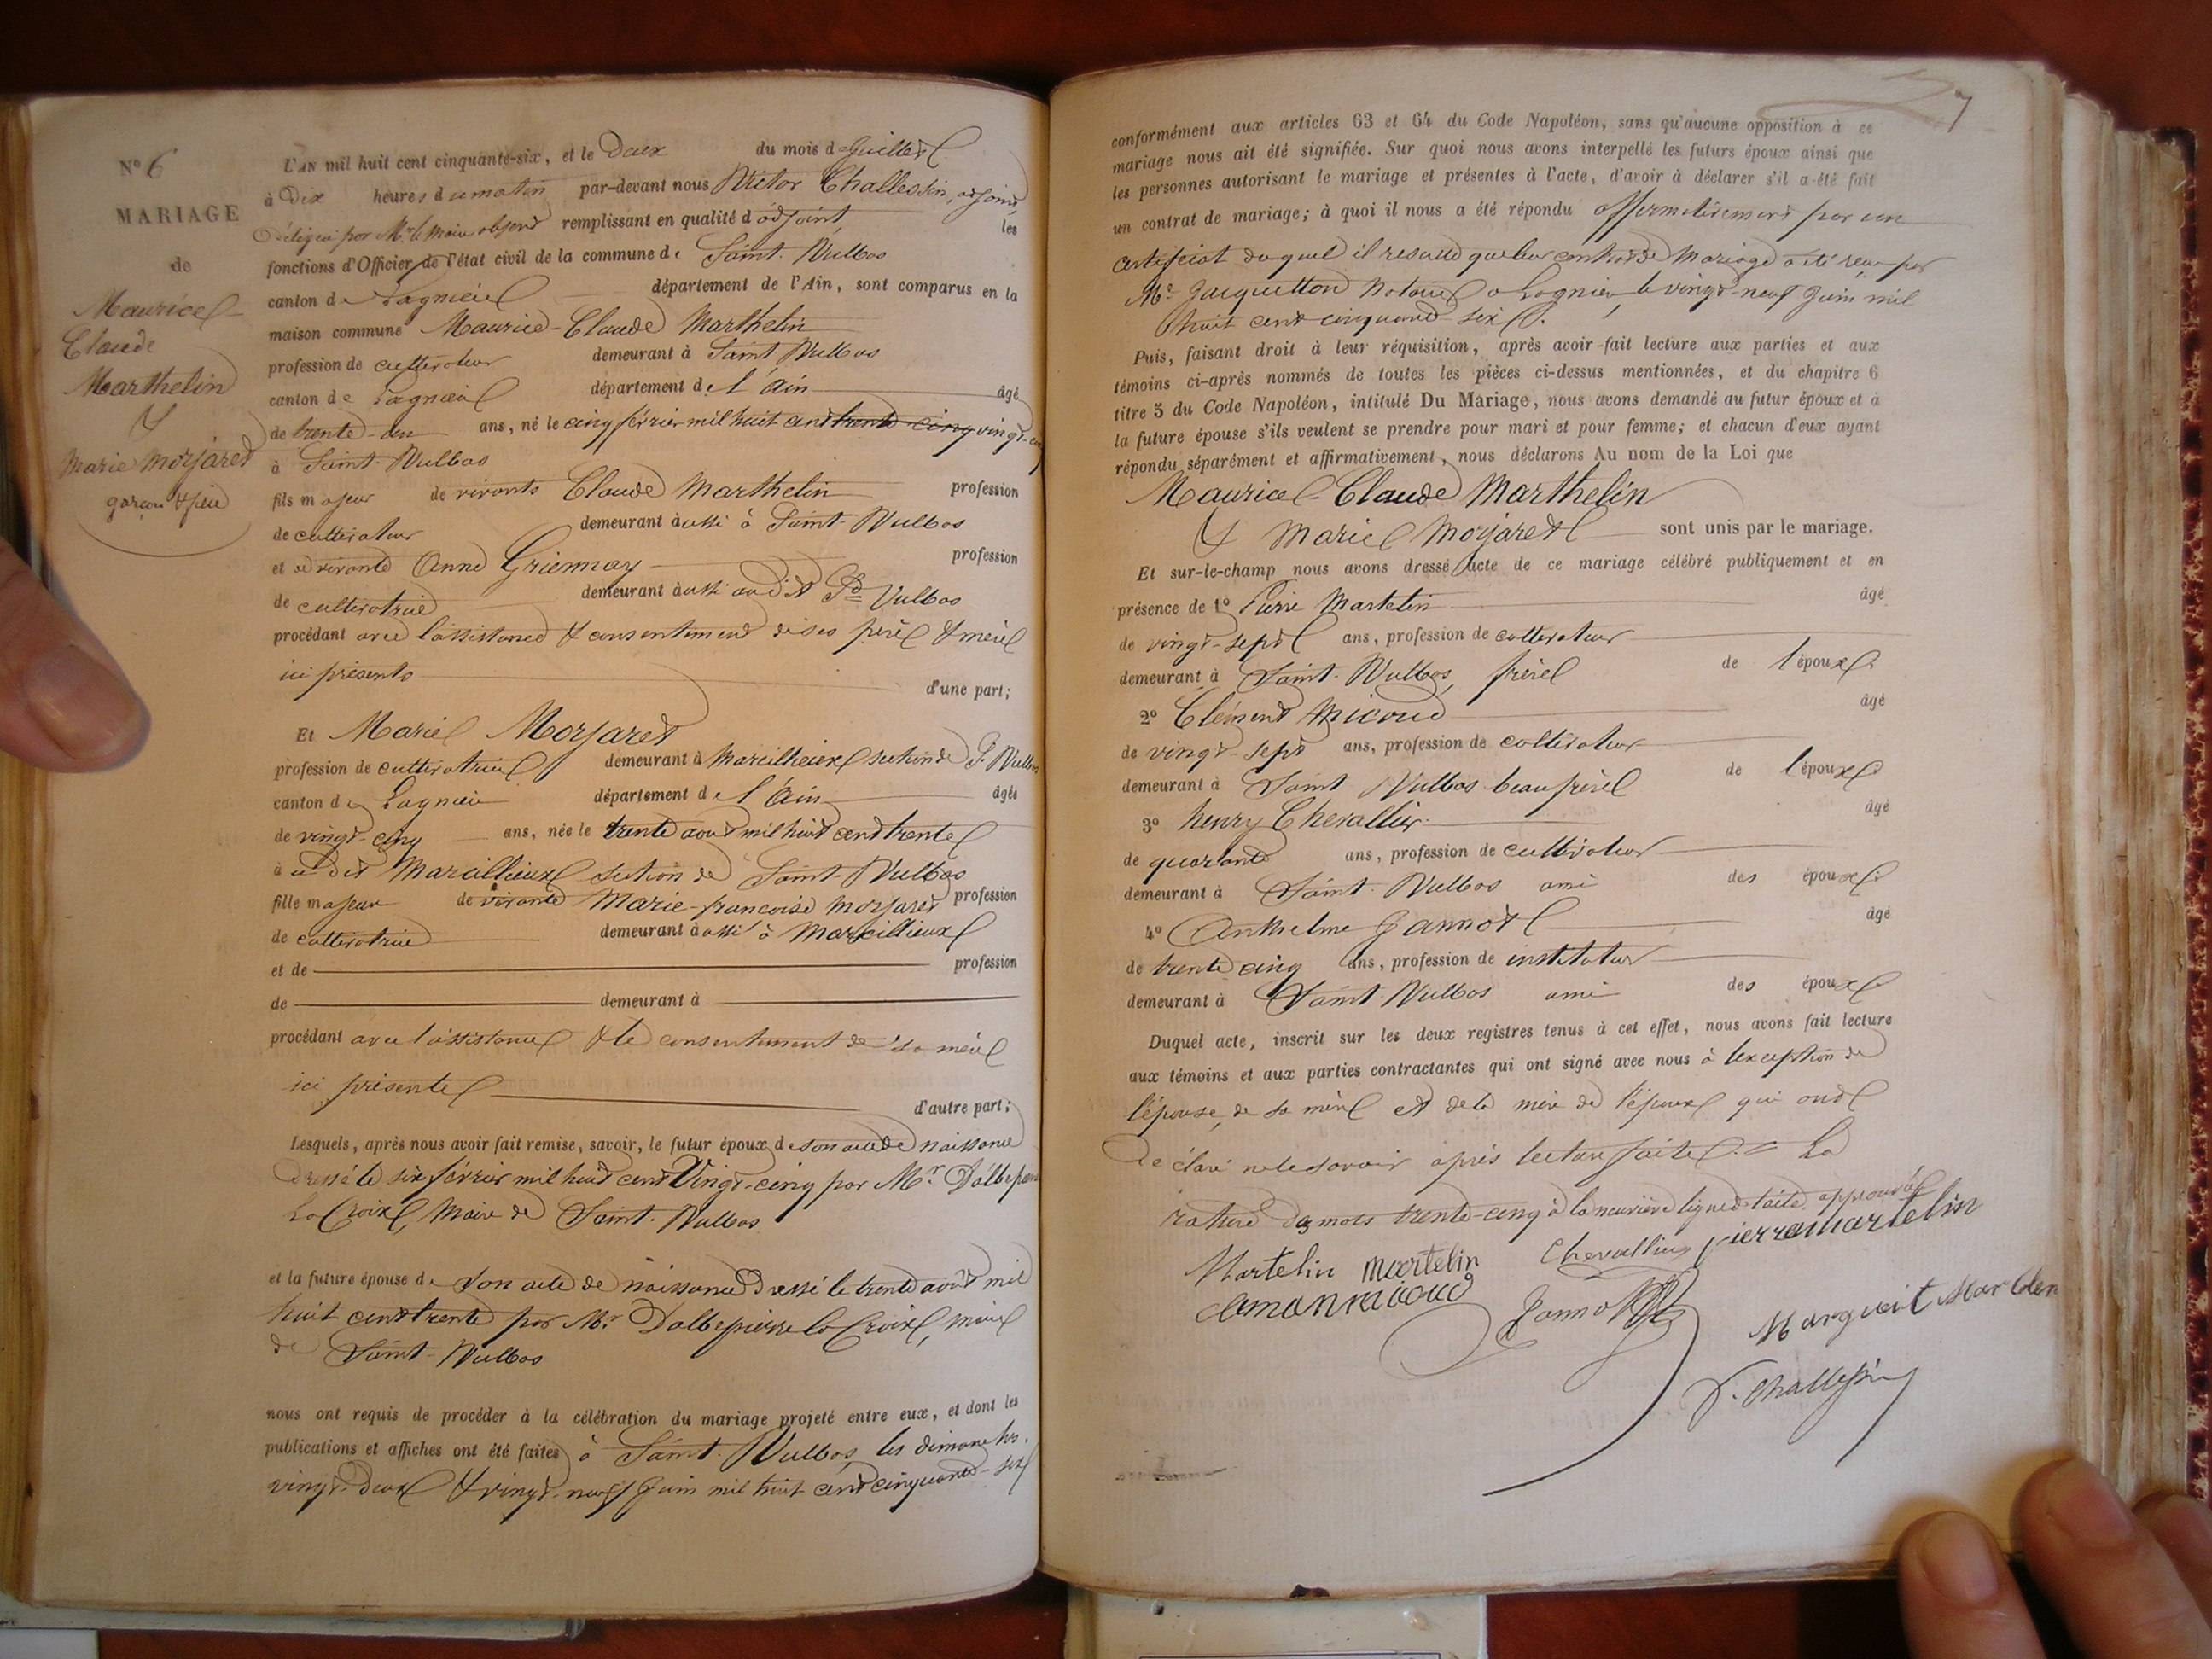 N° 6
MARIAGE
de
Maurice
Claude
Marthelin
&
Marie Morjaret
garçon & fille
L'AN mil huit cent cinquante-six, et le Deux du mois de Juillet
à Dix heures du matin par-devant nous Victor Challessin, adjoint,
Délégué par Mr le Maire absent remplissant en qualité d'adjoint les
fonctions d'Officier de l'état civil de la commune de Saint-Vulbas
canton de Lagnieu département de l'Ain, sont comparus en la
maison commune Maurice-Claude Marthelin
profession de cultivateur demeurant à Saint Vulbas
canton de Lagnieu département de l'Ain âgé
de trente-un ans, né le cinq février mil huit cent trente-cinq vingt-cinq
à Saint-Vulbas
fils majeur de vivants Claude Marthelin profession
de cultivateur demeurant aussi à Saint-Vulbas
et de vivante Anne Griennay profession
de cultivatrice demeurant aussi au dit St Vulbas
procédant avec l'assistance & consentement de ses père & mère
ici présents d'une part;
Et Marie Morjaret
profession de cultivatrice demeurant à Marcillieux section de St Vulbas
canton de Lagnieu département de l'Ain âgée
de vingt-cinq ans, née le trente aout mil huit cent trente
à u dit Marcillieux section de Saint-Vulbas
fille majeur de vivante Marie-francoise Morjaret profession
de cultivatrice demeurant aussi à Marcillieux
et de profession
de demeurant à
procédant avec l'assistance & le consentement de sa mère
ici présente d'autre part;
Lesquels, après nous avoir fait remise, savoir, le futur époux de son acte de naissance
Dressé le six février mil huit cent Vingt-cinq par Mr Dalbepierre
La Croix, Maire de Saint-Vulbas
et la future épouse de son acte de naissance Dressé le trente août mil
huit cent trente par Mr Dalbepierre la Croix, maire
de Saint-Vulbas
nous ont requis de procéder à la célébration du mariage projeté entre eux, et dont les
publications et affiches ont été faites à Saint-Vulbas, les dimanches
vingt-Deux & vingt-neuf Juin mil huit cent cinquante-six
7
conformément aux articles 63 et 64 du Code Napoléon, sans qu'aucune opposition à ce
mariage nous ait été signifiée. Sur quoi nous avons interpellé les futurs époux ainsi que
les personnes autorisant le mariage et présentes à l'acte, d'avoir à déclarer s'il a été fait
un contrat de mariage; à quoi il nous a été répondu affirmativement par un
certificat duquel il resulte que leur contrat de Mariage a été reçu par
Me Jacquetton Notaire à Lagnieu, le vingt-neuf Juin mil
huit cent cinquante-six.
Puis, faisant droit à leur réquisition, après avoir fait lecture aux parties et aux
témoins ci-après nommés de toutes les pièces ci-dessus mentionnées, et du chapitre 6
titre 5 du Code Napoléon, intitulé Du Mariage, nous avons demandé au futur époux et à
la future épouse s'ils veulent se prendre pour mari et pour femme; et chacun d'eux ayant
répondu séparément et affirmativement, nous déclarons Au nom de la Loi que
Maurice-Claude Marthelin
& Marie Morjaret sont unis par le mariage.
Et sur-le-champ nous avons dressé acte de ce mariage célébré publiquement et en
présence de 1° Pierre Martelin âgé
de vingt-sept ans, profession de cultivateur
demeurant à Saint-Vulbas, frère de l'époux
2° Clément Micoud âgé
de vingt-sept ans, profession de cultivateur
demeurant à Saint Vulbas beau frère de l'époux
3° henry Chevallier âgé
de quarante ans, profession de cultivateur
demeurant à Saint-Vulbas ami des époux
4° Anthelme Jannot âgé
de trente cinq ans, profession de instituteur
demeurant à Saint-Vulbas ami des époux
Duquel acte, inscrit sur les deux registres tenus à cet effet, nous avons fait lecture
aux témoins et aux parties contractantes qui ont signé avec nous à l'exception de
l'épouse, de sa mère et de la mère de l'époux qui ont
Déclaré ne le savoir après lecture faite. La
rature des mots trente-cinq à la neuvième ligne faite approuvée
Martelin Martelin Chevallier pierre martelin
Jannot
V. Challessin